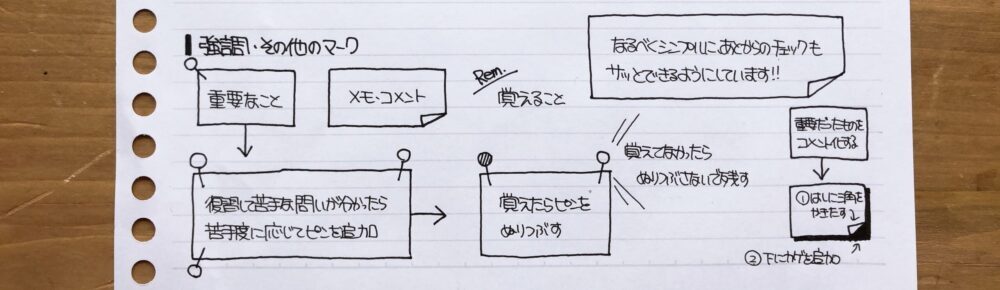 強調・その他のマーク
なるべくシンプルにあとからのチェックも
サッとできるようにしています!!
重要なこと
メモ・コメント
Rem.
覚えること
復習して苦手な問いが分かったら
苦手度に応じてピンを追加
覚えたらピンを
ぬりつぶす
覚えてなかったら
ぬりつぶさないで残す
重要だったものを
コメント化する
①はしに三角を
かきたす
②下にカゲを追加